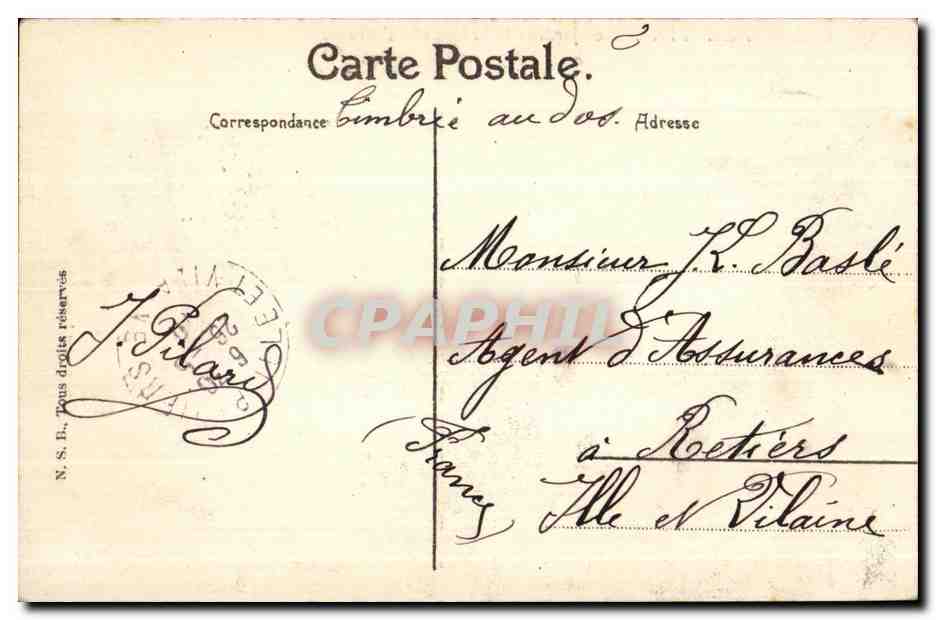 Carte Postale.
Correspondance timbrée au dos. Adresse
Monsieur J. L. Baslé
Agent d'Assurances
à Retiers
Ille et Vilaine
(France)
J. Pilard
N. S. B., Tous droits réservés
ILLE-ET-VILAINE
CPAPHIL